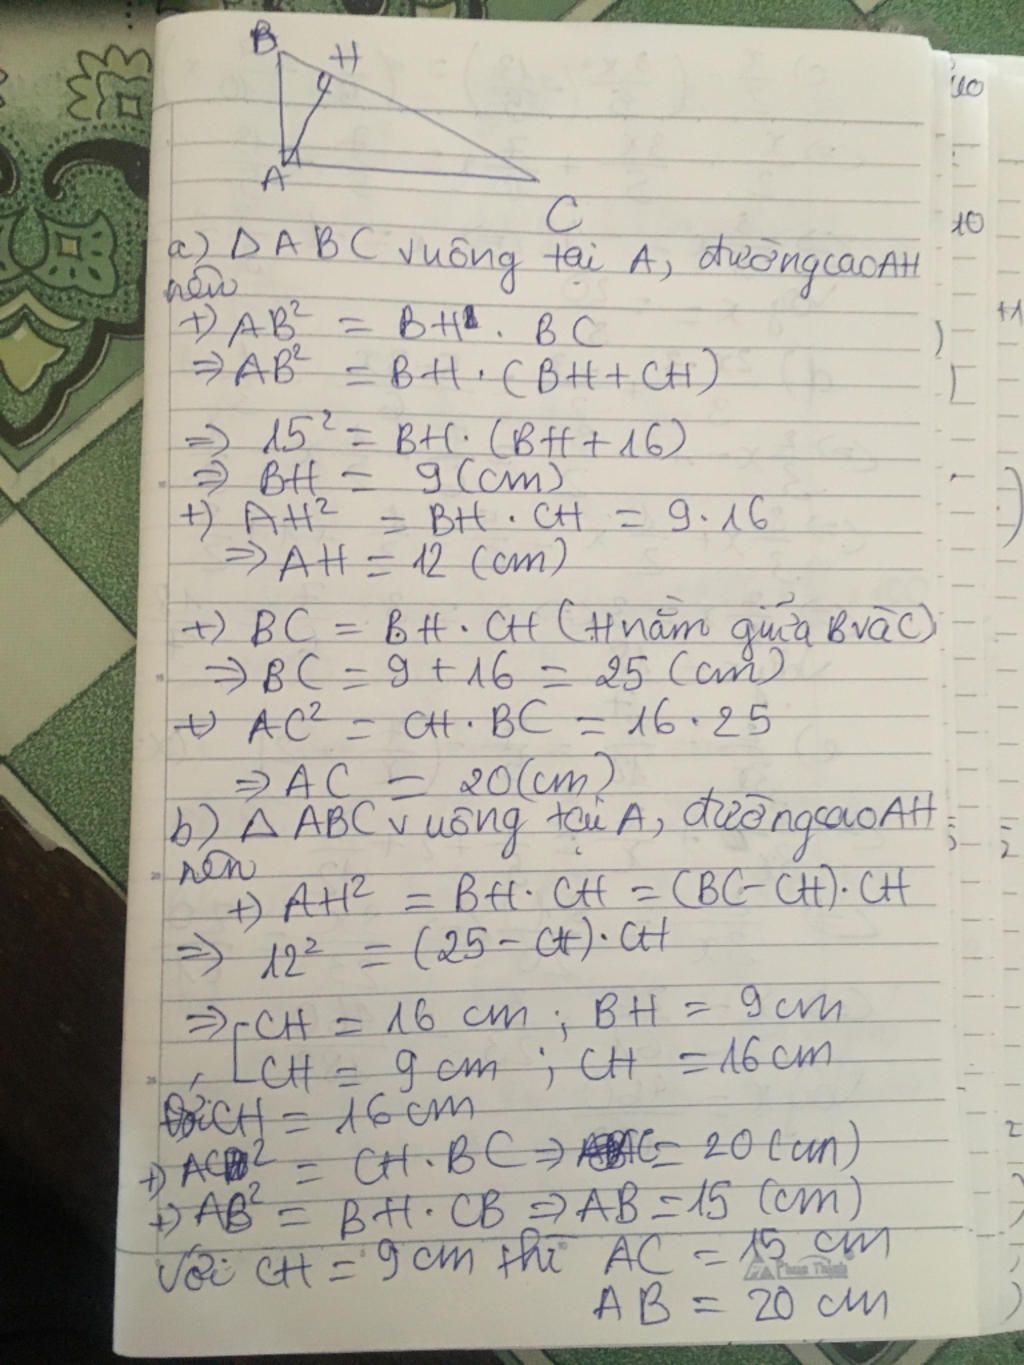 B
H
A
C
a) Δ ABC vuông tại A, đường cao AH
nên
+) AB² = BH . BC
⇒ AB² = BH . (BH + CH)
⇒ 15² = BH . (BH + 16)
⇒ BH = 9 (cm)
+) AH² = BH . CH = 9 . 16
⇒ AH = 12 (cm)
+) BC = BH . CH (H nằm giữa B và C)
⇒ BC = 9 + 16 = 25 (cm)
+) AC² = CH . BC = 16 . 25
⇒ AC = 20 (cm)
b) Δ ABC vuông tại A, đường cao AH
nên
+) AH² = BH . CH = (BC - CH) . CH
⇒ 12² = (25 - CH) . CH
⇒ [ CH = 16 cm ; BH = 9 cm
CH = 9 cm ; CH = 16 cm
Với CH = 16 cm
+) AC² = CH . BC ⇒ AC = 20 (cm)
+) AB² = BH . CB ⇒ AB = 15 (cm)
Với CH = 9 cm thì AC = 15 cm
AB = 20 cm